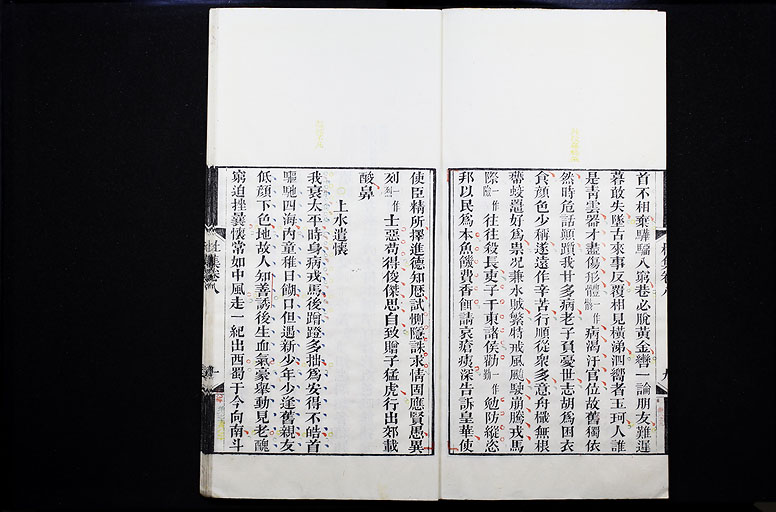 首不相棄驊騮入窮巷必脫黃金轡一論朋友難遲
暮敢失墜古來事反覆相見橫涕泗嚮者玉珂人誰
是青雲器才盡傷形體一作骸病渴汙官位故舊獨依
然時危話顛躓我甘多病老子負憂世志胡為困衣
食顏色少稱遂遠作辛苦行順從衆多意舟檝無根
蔕蛟鼉好為祟况兼水賊繁特戒風飇駛崩騰戎馬
際一作險往往殺長吏子干東諸侯勸一作勉防縱恣
邦以民為本魚饑費香餌請哀瘡痍深告訴皇華使
使臣精所擇進德知歷試惻隱誅求情固應賢愚異
列一作烈士惡苟得俊傑思自致贈子猛虎行出郊載
酸鼻
上水遣懷
我衰太平時身病戎馬後蹭蹬多拙為安得不皓首
驅馳四海內童稚日餬口但遇新少年少逢舊親友
低顏下色地故人知善誘後生血氣豪舉動見老醜
窮迫挫曩懷常如中風走一紀出西蜀于今向南斗
杜集卷八